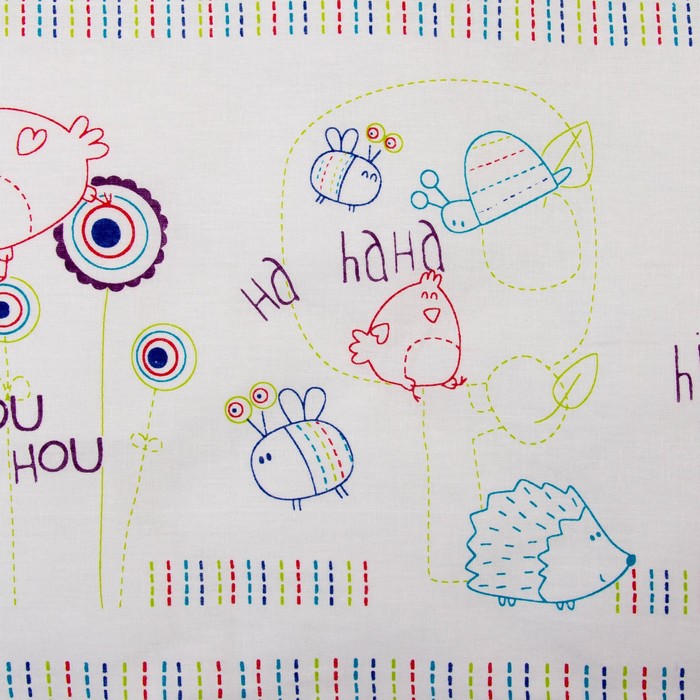 Ha haHa
OU
HOU